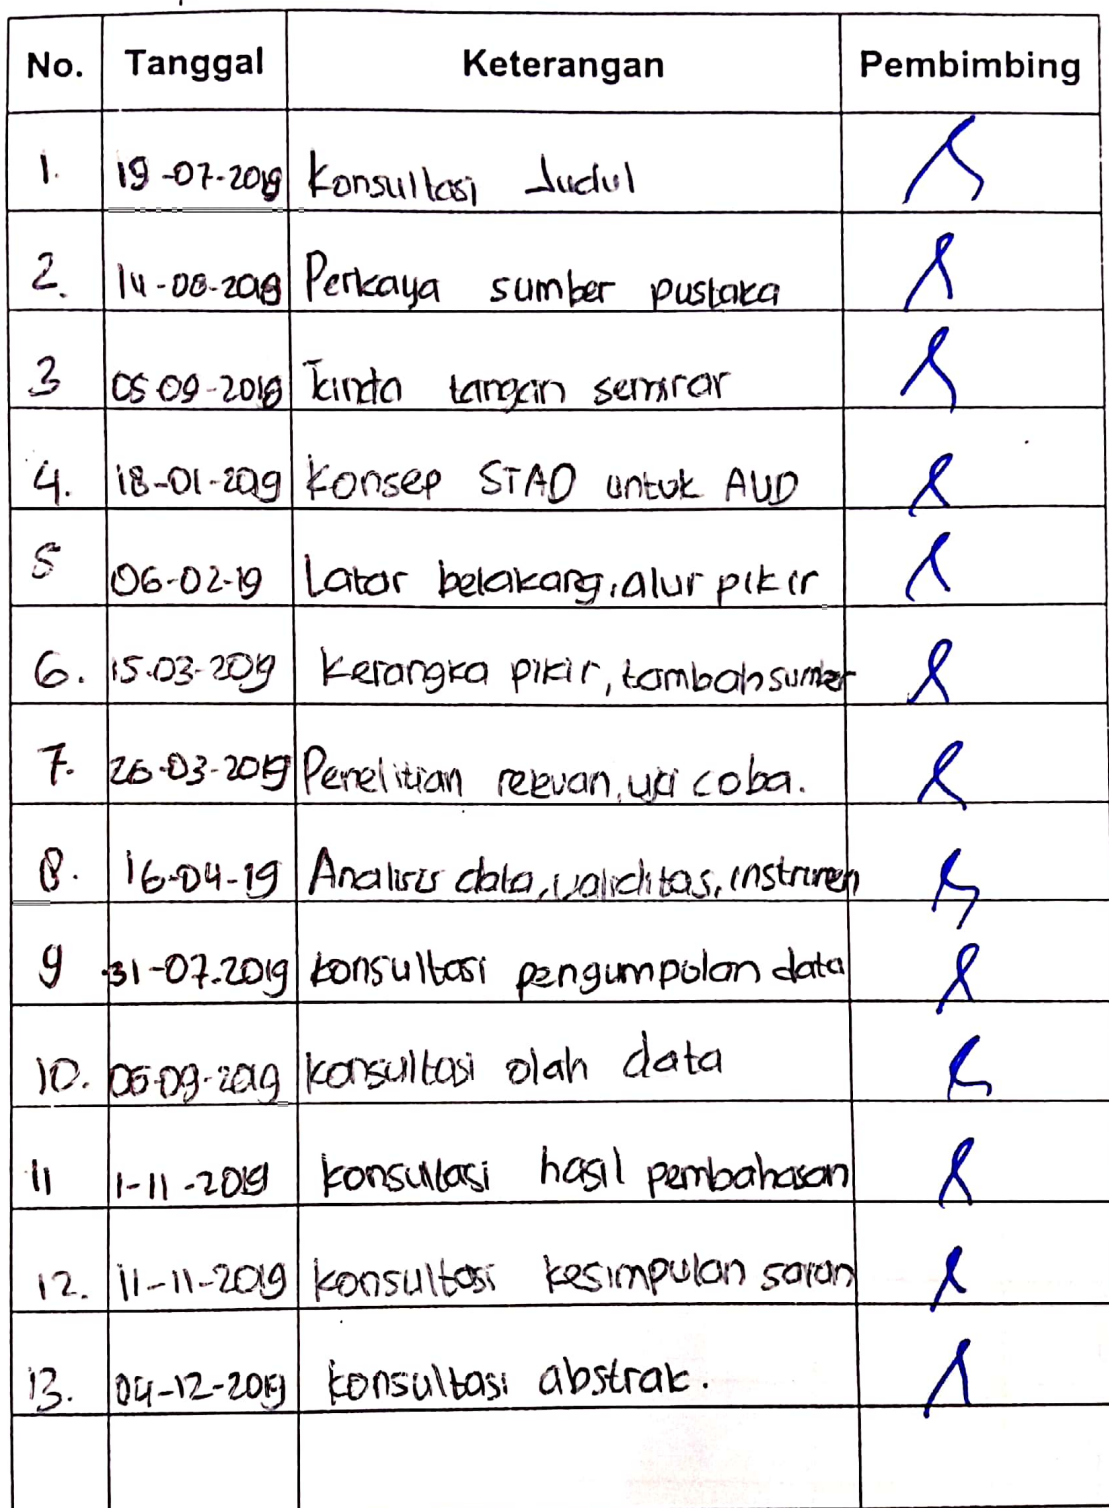 No. Tanggal Keterangan Pembimbing
1. 19-07-2018 Konsultasi Judul
2. 14-08-2018 Perkaya sumber pustaka
3 05-09-2018 Tanda tangan seminar
4. 18-01-2019 Konsep STAD untuk AUD
5 06-02-19 Latar belakang, alur pikir
6. 15-03-2019 Kerangka pikir, tambah sumber
7. 26-03-2019 Penelitian relevan, uji coba.
8. 16-04-19 Analisis data, validitas, instrumen
9 31-07-2019 konsultasi pengumpulan data
10. 05-09-2019 konsultasi olah data
11 1-11-2019 konsultasi hasil pembahasan
12. 11-11-2019 konsultasi kesimpulan saran
13. 04-12-2019 konsultasi abstrak.